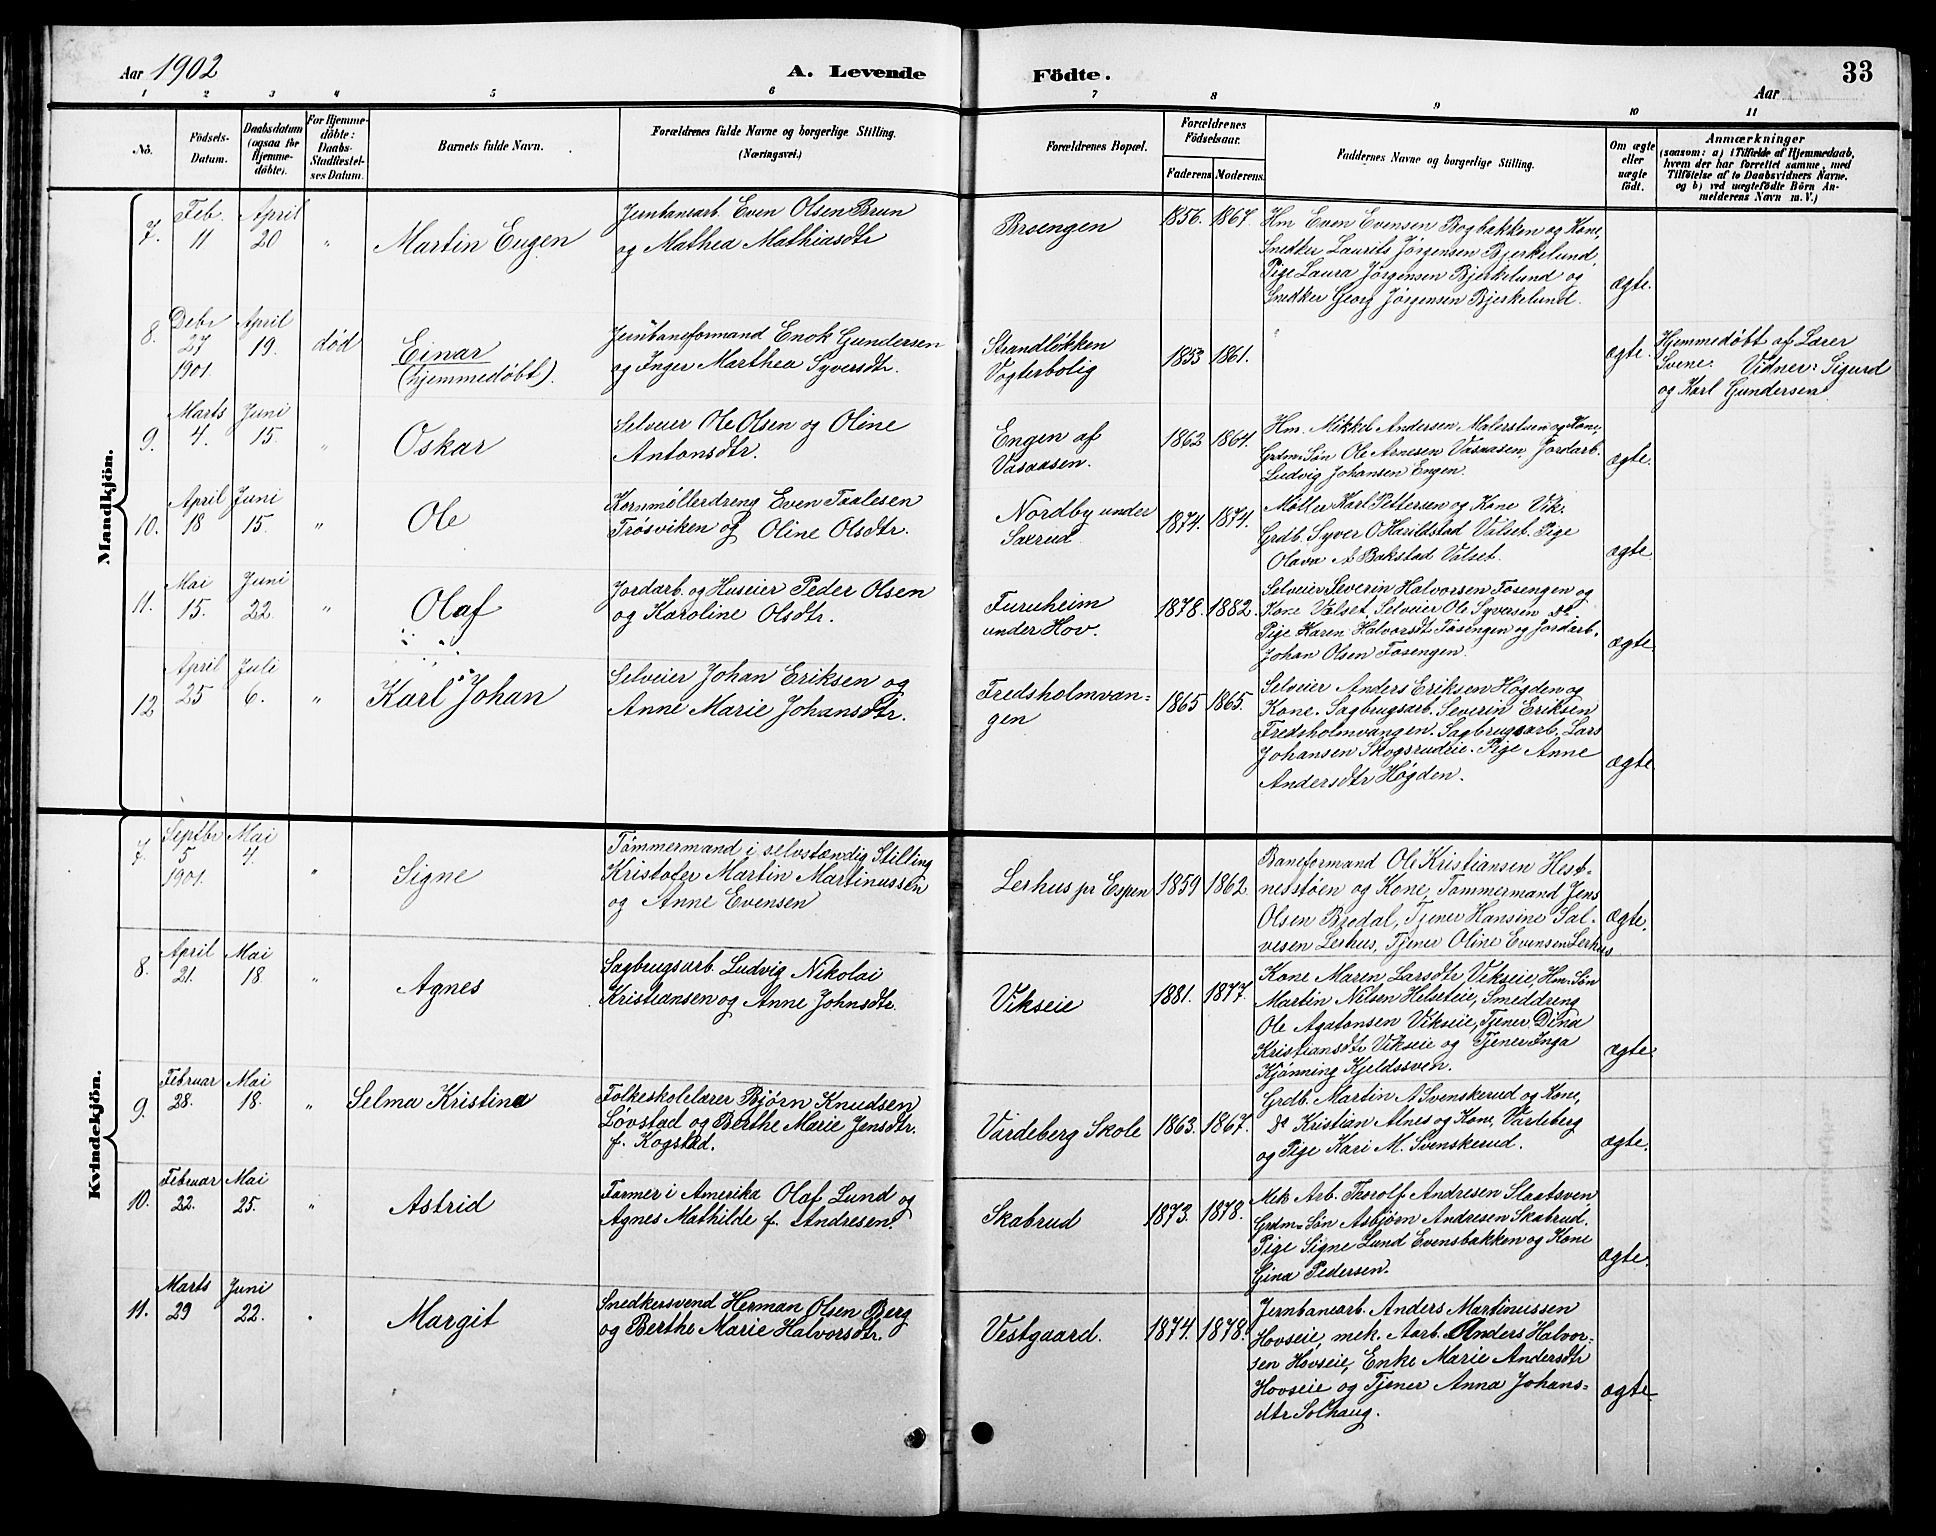 Aar 1902
A. Levende Födte.
33
Aar
1 2 3 4 5 6 7 8 9 10 11
No.
Födsels-
Datum.
Daabsdatum
(ogsaa for
Hjemme-
döbte).
For Hjemme-
döbte:
Daabs-
Stadfæstel-
ses Datum.
Barnets fulde Navn.
Forældrenes fulde Navne og borgerlige Stilling.
(Næringsvei.)
Forældrenes Bopæl.
Forældrenes
Födselsaar.
Faderens Moderens.
Faddernes Navne og borgerlige Stilling.
Om ægte
eller
uægte
födt.
Anmærkninger
(saasom: a) i Tilfælde af Hjemmedaab,
hvem der har forrettet samme, med
Tilföielse af to Daabsvidners Navne.
og b) ved uægtefödte Börn An-
melderens Navn m. V.)
Mandkjön.
7.
Feb.
11
April
20
"
Martin Eugen
Jernbanearb. Even Olsen Brun
og Mathea Mathiasdtr
Broengen
1856. 1867.
Hm Even Evensen Bogbakken og Kone,
Snedker Laurits Jørgensen Bjerkelund,
Pige Laura Jørgensen Bjerkelund og
Snedker Georg Jørgensen Bjerkelund.
ægte.
8.
Debr
27
1901.
April
19.
død
Einar
(hjemmedøbt).
Jernbaneformand Enok Gundersen
og Inger Marthea Syversdtr.
Strandløkken
Vogterbolig
1853 1861.
ægte.
Hjemmedøbt af Lærer
Svene. Vidner: Sigurd
og Karl Gundersen.
9.
Marts
4.
Juni
15.
"
Oskar
Selveier Ole Olsen og Oline
Antonsdtr.
Engen af
Vasaasen.
1862 1864.
Hm. Mikkel Andersen Malerstuen og Kone,
Grdm. Søn Ole Arnesen Vasaasen, Jordarb.
Ludvig Johansen Engen.
ægte.
10.
April
18
Juni
15.
"
Ole
Kornmøllerdreng Even Taalesen
Trøsviken og Oline Olsdtr.
Nordby under
Saxrud.
1874. 1874.
Møller Karl Pettersen og Kone Vik.
Grdb. Syver O Haraldstad Valset. Pige
Olava A Bakstad Valset.
ægte
11.
Mai
15.
Juni
22.
"
Olaf
Jordarb. og Huseier Peder Olsen
og Karoline Olsdtr.
Furuheim
under Hov.
1878. 1882.
Selveier Severin Halvorsen Fosengen og
Kone Valset, Selveier Ole Syversen do
Pige Karen Halvorsdtr Fosengen og Jordarb.
Johan Olsen Fosengen.
ægte
12
April
25
Juli
6.
"
Karl Johan
Selveier Johan Eriksen og
Anne Marie Johansdtr.
Fredsholmvan-
gen
1865 1865.
Selveier Anders Eriksen Høgden og
Kone. Sagbrugsarb. Severin Eriksen
Fredsholmvangen. Sagbrugsarb. Lars
Johansen Skogsrudeie. Pige Anne
Andersdtr Høgden.
ægte
Kvindekjön.
7.
Septbr
5
1901.
Mai
4.
"
Signe
Tømmermand i selvstændig Stilling
Kristofer Martin Martinussen
og Anne Evensen
Lerhus pr Espen
1859 1862
Baneformand Ole Kristiansen Hest-
nesstøen og Kone, Tømmermand Jens
Olsen Bredal, Tjener Hansine Sal-
vesen Lerhus, Tjener Oline Evensen Lerhus
ægte.
8.
April
21.
Mai
18
"
Agnes
Sagbrugsarb. Ludvig Nikolai
Kristiansen og Anne Johnsdtr.
Vikseie
1881. 1877.
Kone Maren Larsdtr Vikseie, Hm. Søn
Martin Nilsen Helseteie, Smeddreng
Ole Agatonsen Vikseie, Tjener Dina
Kristiansdtr Vikseie og Tjener Inga
Kjønning Kjeldssven.
ægte
9.
Februar
28.
Mai
18.
"
Selma Kristine
Folkeskolelærer Bjørn Knudsen
Løvstad og Berthe Marie Jensdtr.
f. Kogstad.
Vardeberg Skole
1863. 1867.
Grdb. Martin A Svenskerud og Kone,
do Kristian Alnes og Kone, Vardeberg
og Pige Kari M. Svenskerud.
ægte.
10.
Februar
22.
Mai
25.
"
Astrid
Farmer i Amerika Olaf Lund og
Agnes Mathilde f. Andresen.
Skabrud
1873. 1878.
Mek Arb. Thorolf Andresen Slaatsven
Grdm. Søn Asbjørn Andresen Skabrud.
Pige Signe Lund Evensbakken og Kone
Gina Pedersen.
ægte.
11.
Marts
29
Juni
22.
"
Margit
Snedkersvend Herman Olsen Berg
og Berthe Marie Halvorsdtr.
Vestgaard.
1874. 1878.
Jernbanearb. Anders Martinussen
Hovseie, mek. Aarb. Anders Halvor-
sen Hovseie, Enke Marie Andersdtr
Hovseie og Tjener Anna Johans-
dtr Solhaug.
ægte.